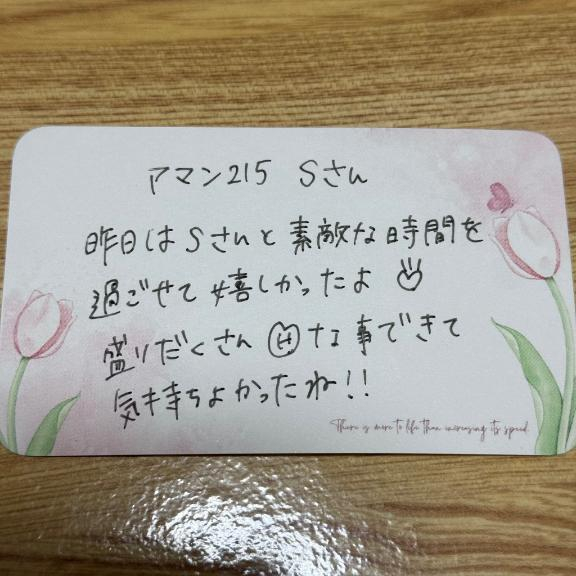 アマン215 Sさん
昨日はSさんと素敵な時間を
過ごせて嬉しかったよ
盛りだくさんHな事できて
気持ちよかったね!!
There is more to life than increasing its speed.